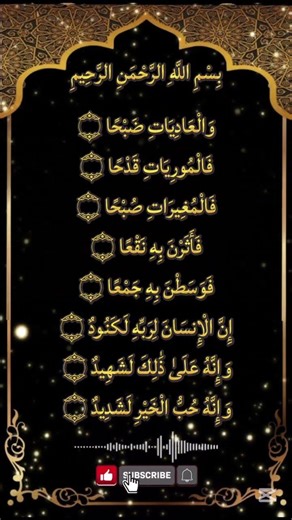 بِسْمِ اللَّهِ الرَّحْمَنِ الرَّحِيمِ
وَالْعَادِيَاتِ ضَبْحًا
فَالْمُورِيَاتِ قَدْحًا
فَالْمُغِيرَاتِ صُبْحًا
فَأَثَرْنَ بِهِ نَقْعًا
فَوَسَطْنَ بِهِ جَمْعًا
إِنَّ الْإِنسَانَ لِرَبِّهِ لَكَنُودٌ
وَإِنَّهُ عَلَىٰ ذَٰلِكَ لَشَهِيدٌ
وَإِنَّهُ حُبُّ الْخَيْرِ لَشَدِيدٌ
SUBSCRIBE